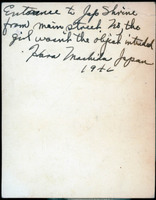 Entrance to Jap Shrine
from main street. No, the
girl wasn't the object intended.
Hara Machida Japan
1946